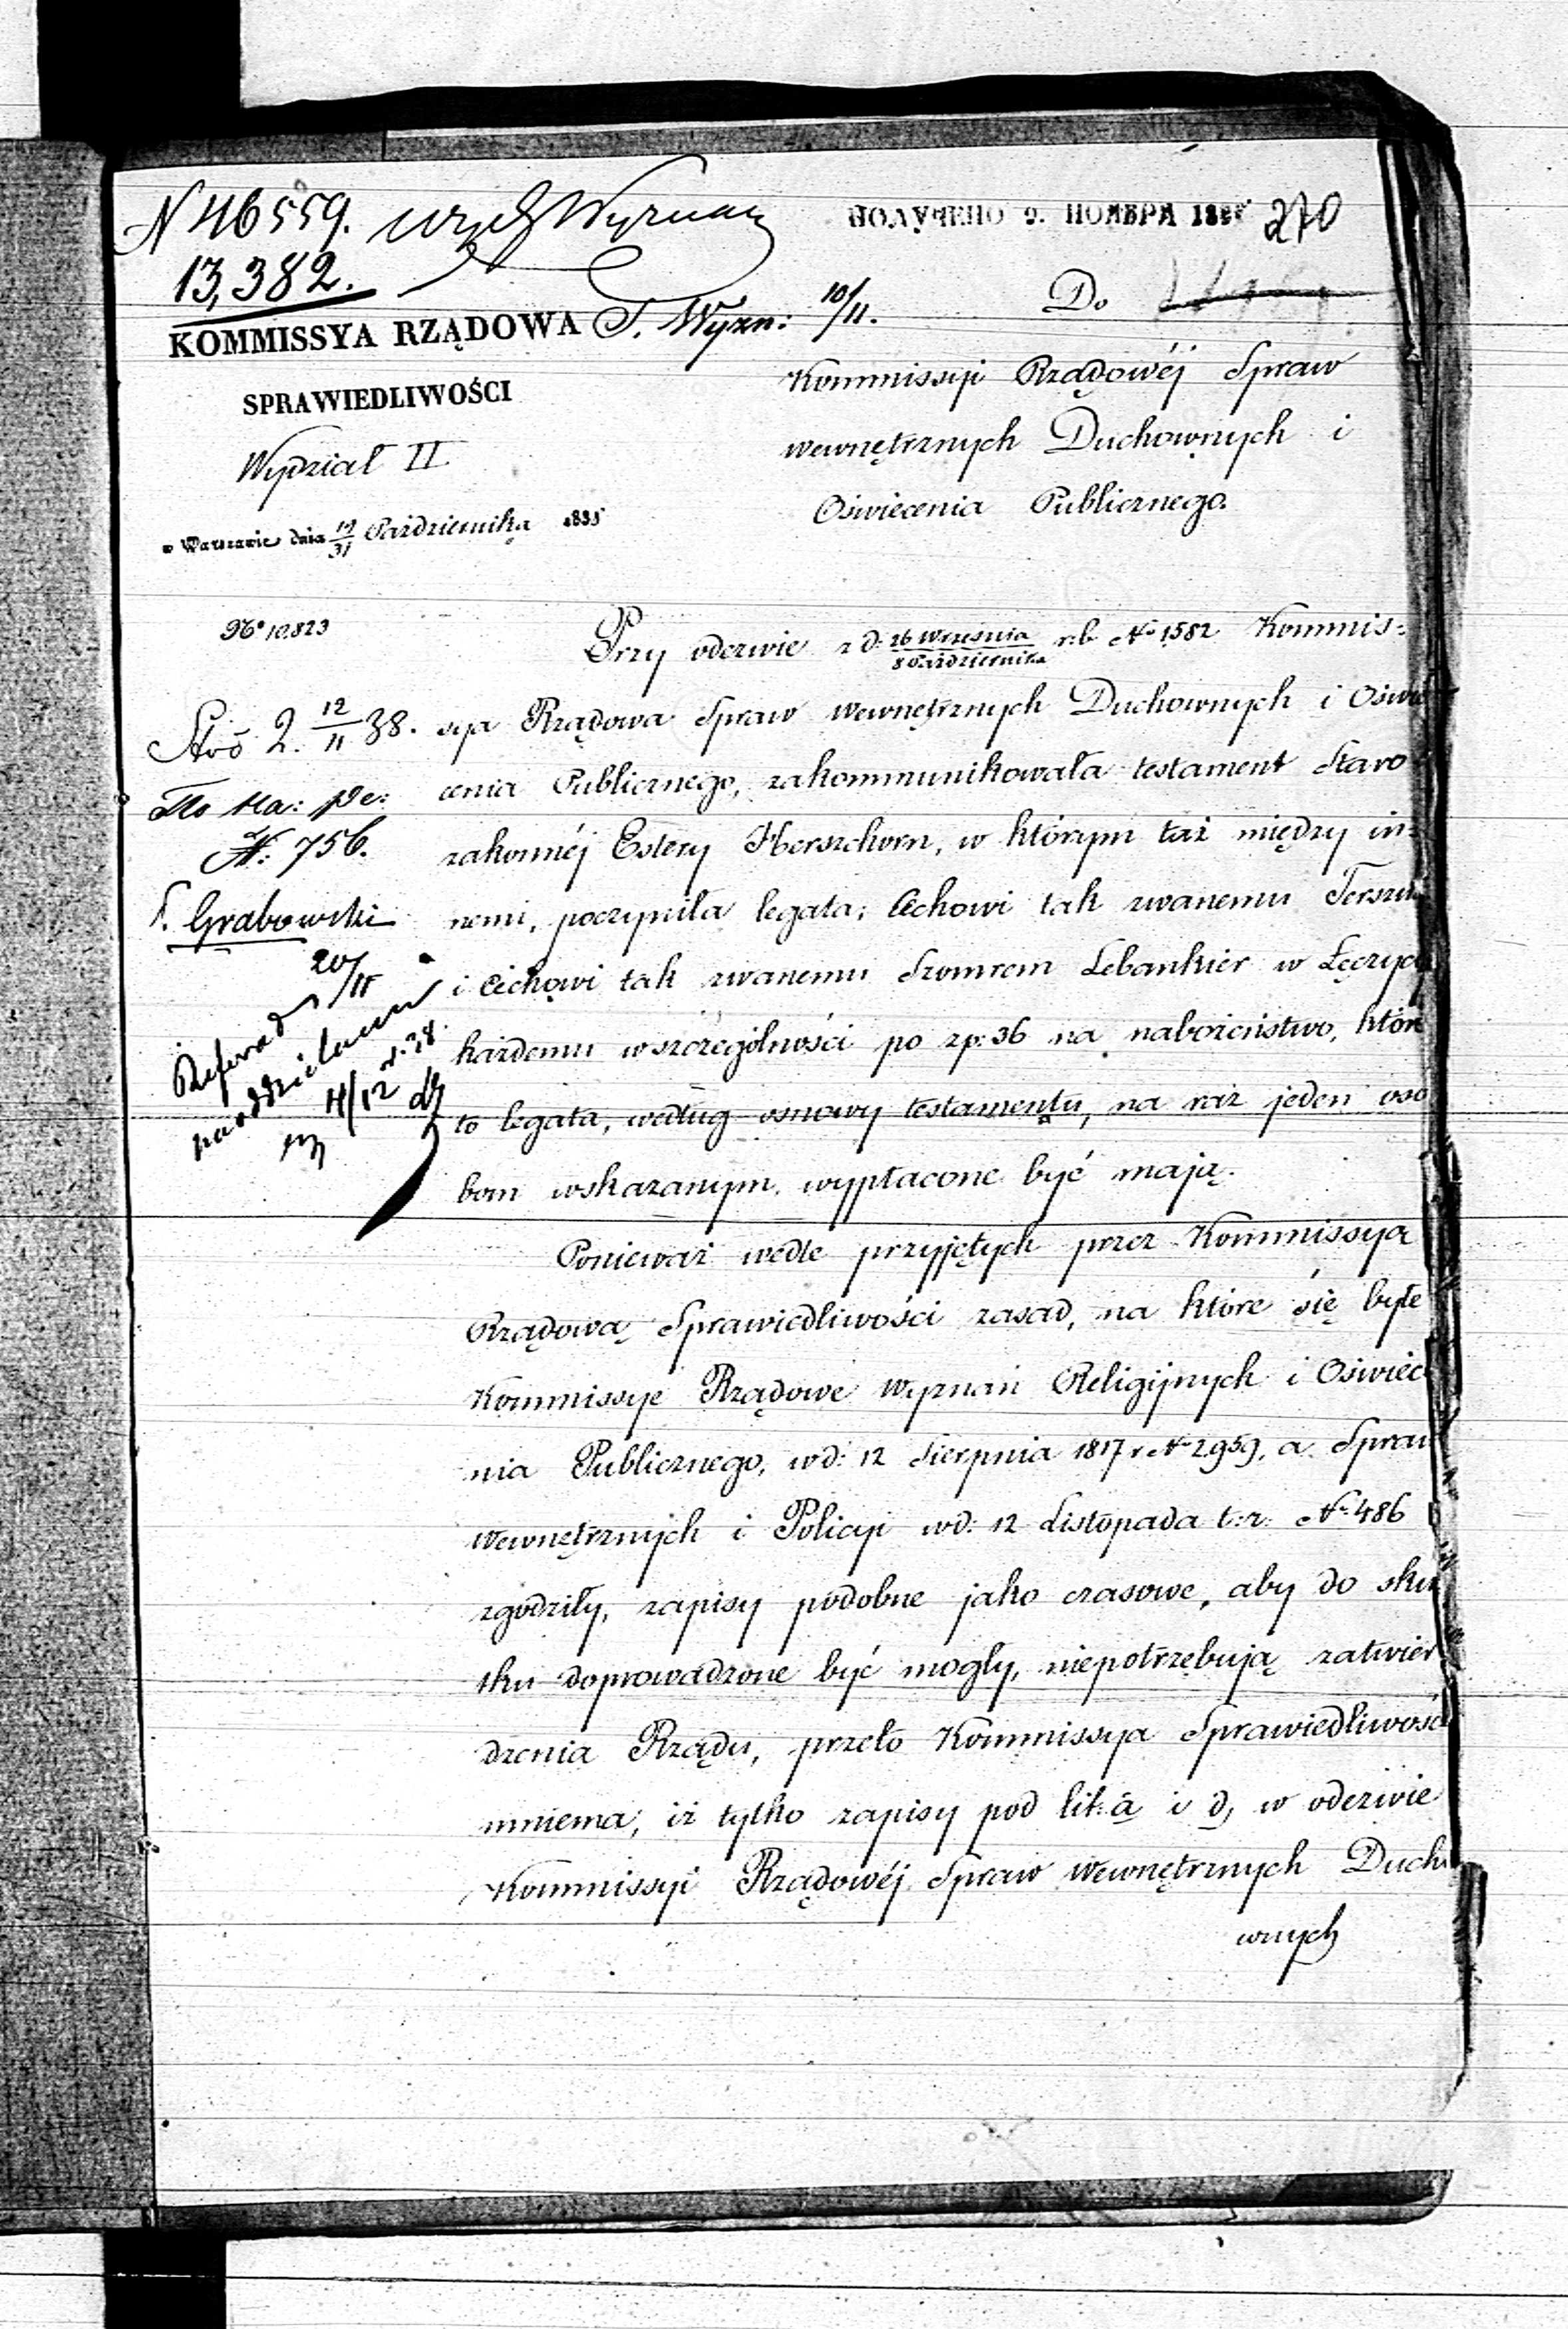 N 46559.
13,382.
ПОЛУЧЕНО 9. НОЯБРЯ 270
KOMMISSYA RZĄDOWA
S. Wyzn: 10/11.
SPRAWIEDLIWOŚCI
Wydział II
w Warszawie dnia 19/31 Października 183
Do
Kommissyi Rządowéj Spraw
wewnętrznych Duchownych i
Oświecenia Publicznego.
No 10823
Przy odezwie z d. 26 Września/8 Października r.b. No 1582 Kommis=
sya Rządowa Spraw Wewnętrznych Duchownych i Oświe
cenia Publicznego, zakommunikowała testament Staro
zakonnéj Estery Herszchorn, w którym taż między in=
nemi, poczyniła legata; Cechowi tak zwanemu
i Cechowi tak zwanemu Szomrem Lebankier w Łęczyc
każdemu w szczególności po zp: 36 na nabożeństwo, któr
to legata, według osnowy testamentu, na raz jeden oso
bom wskazanym, wypłacone być mają.
Ponieważ wedle przyjętych przez Kommissya
Rządową Sprawiedliwości zasad, na które się byłe
Kommissye Rządowe Wyznań Religijnych i Oświec
nia Publicznego, w d: 12 Sierpnia 1817 r No 2959, a Spraw
Wewnętrznych i Policyi w d: 12 Listopada t.r. No 486
zgodziły, zapisy podobne jako czasowe, aby do sku
tku doprowadzone być mogły, niepotrzebują zatwier
dzenia Rządu, przeto Kommissya Sprawiedliwośc
mniema, iż tylko zapisy pod lit: a i d, w odezwie
Kommissyi Rządowéj Spraw Wewnętrznych Ducho
wnych
2. 12/11 38.
N: 756.
Grabowski
20/11
Referad
4/12